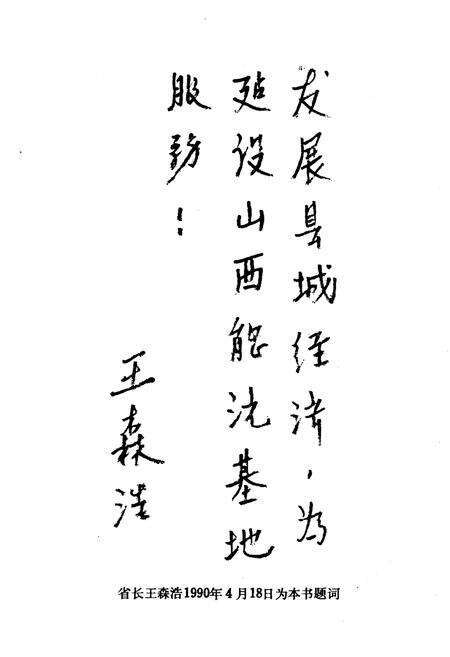 发展县城经济，为
建设山西能源基地
服务！
王森浩
省长王森浩1990年4月18日为本书题词